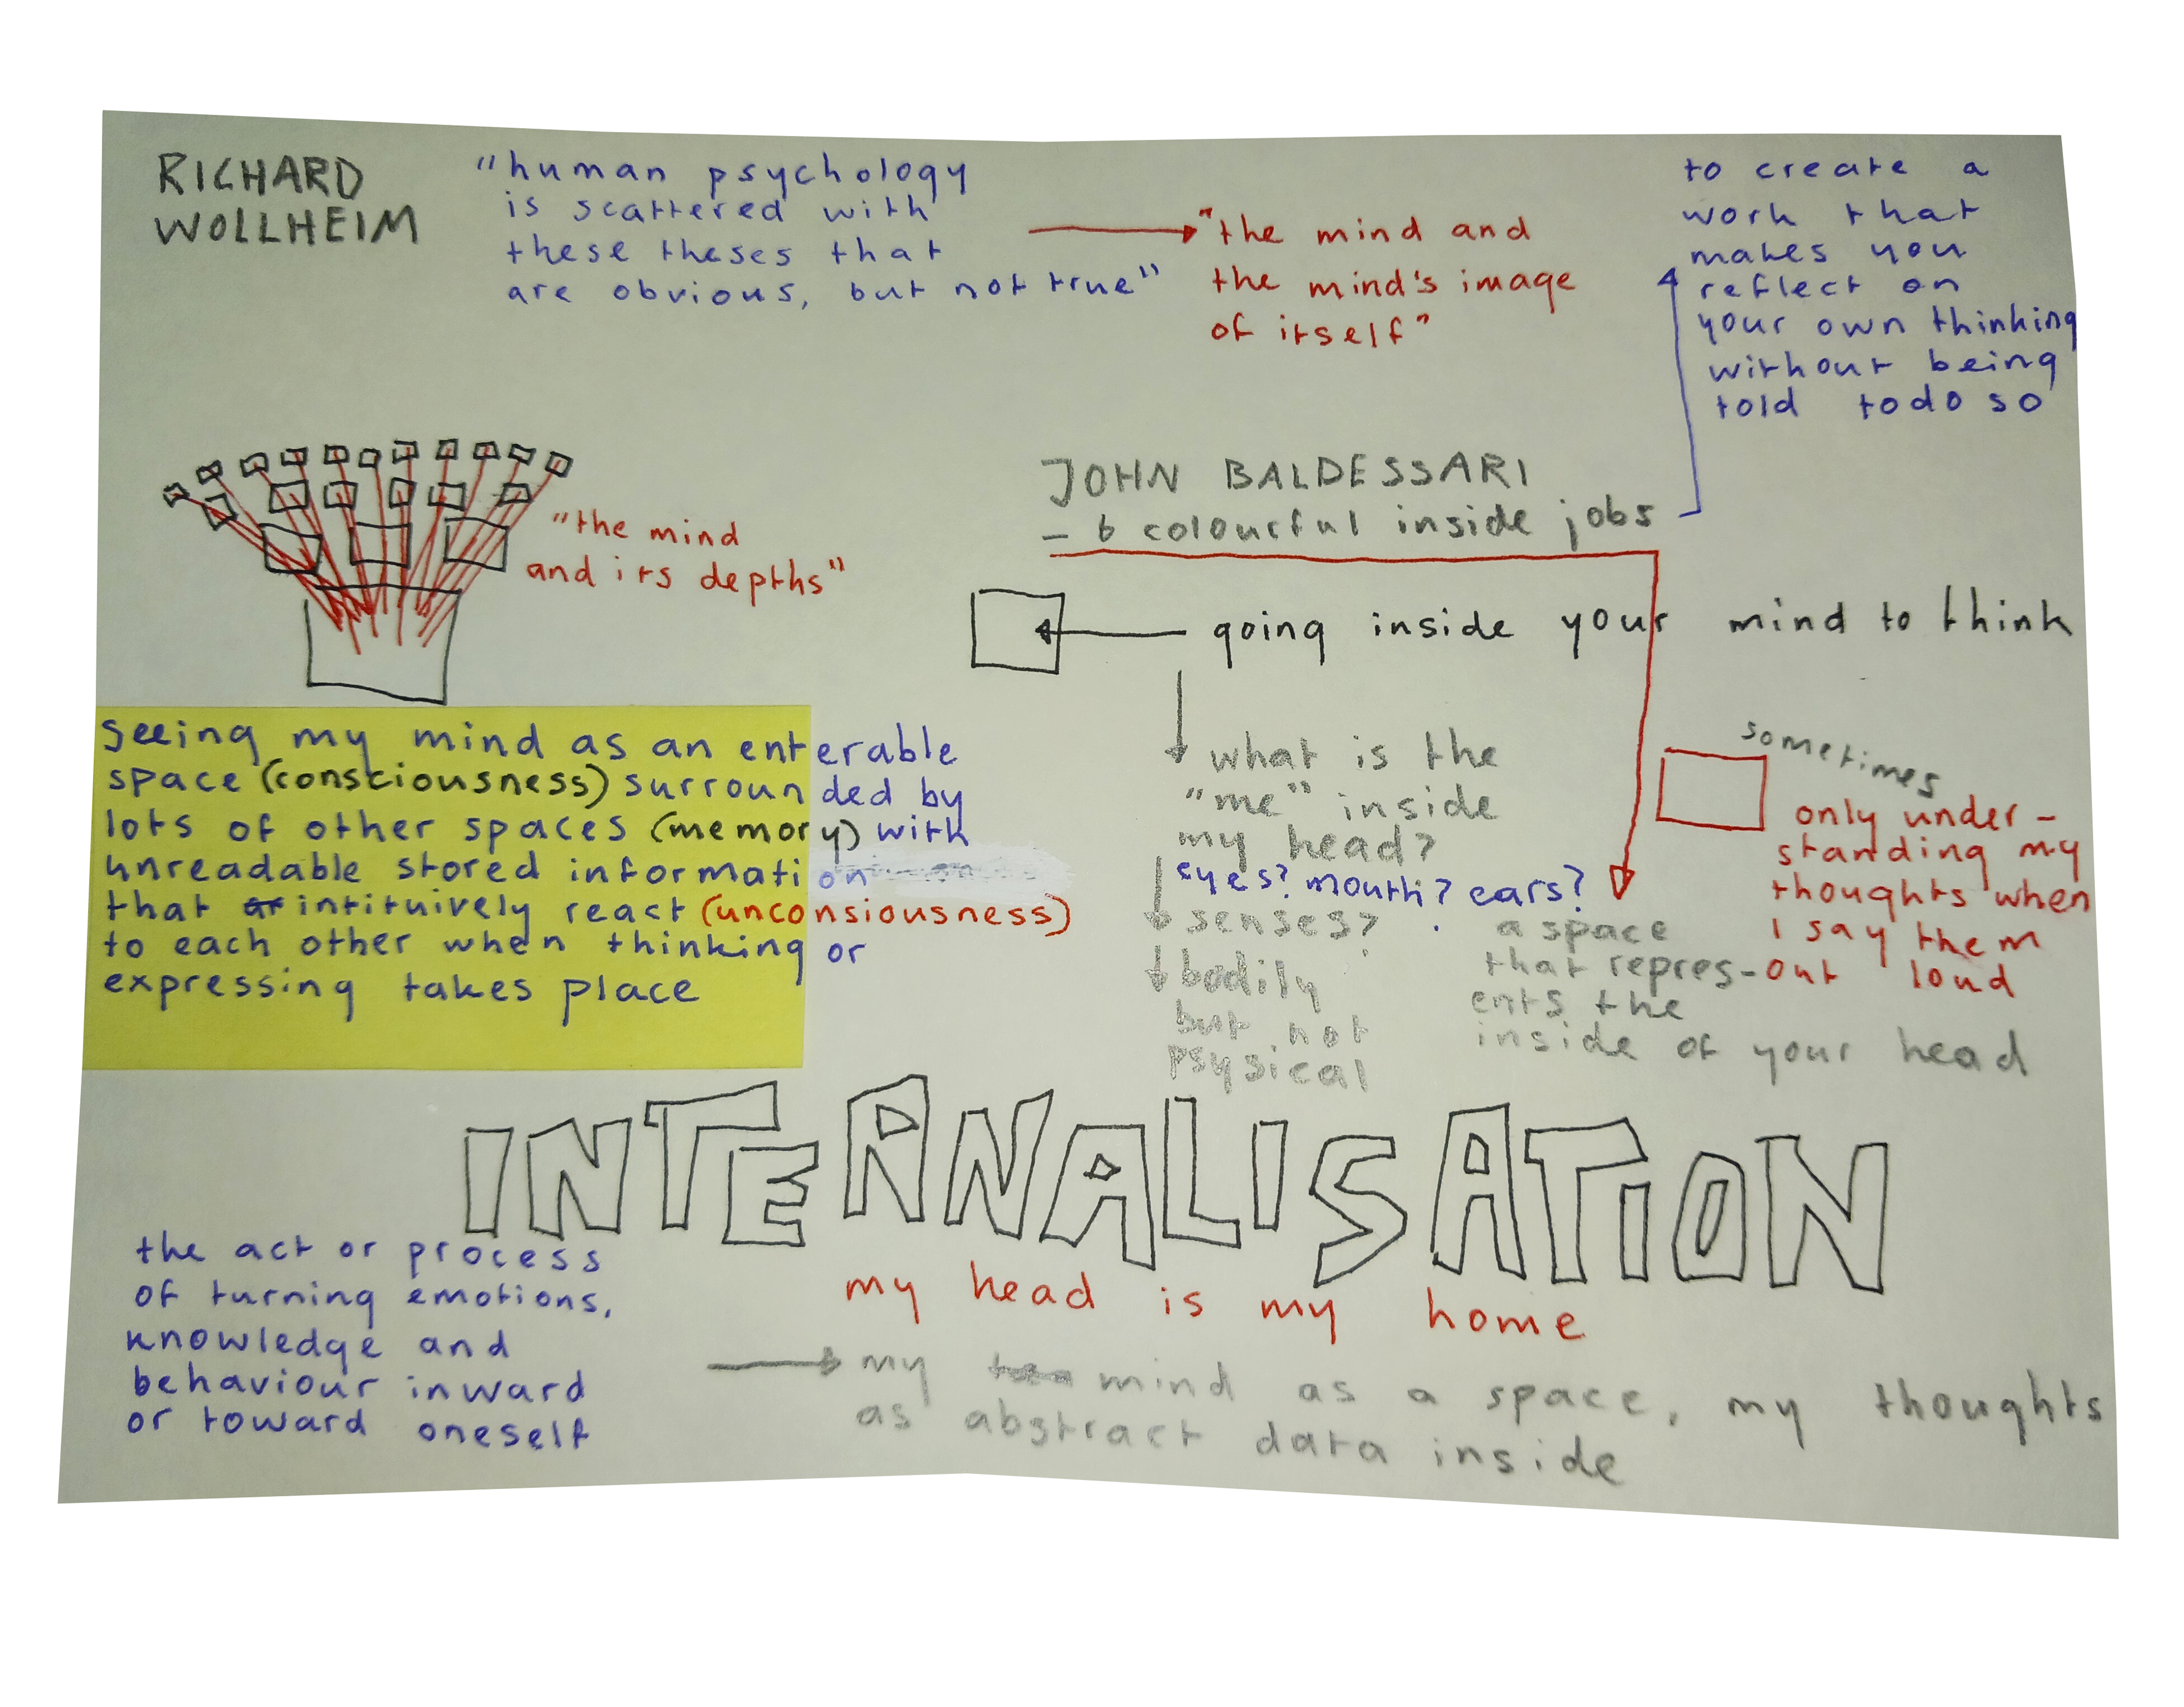 RICHARD
WOLLHEIM
"human psychology
is scattered with
these theses that
are obvious, but not true"
"the mind and
the mind's image
of itself"
to create a
work that
makes you
reflect on
your own thinking
without being
told to do so
JOHN BALDESSARI
- 6 colourful inside jobs
"the mind
and its depths"
going inside your mind to think
seeing my mind as an enterable
space (consciousness) surrounded by
lots of other spaces (memory) with
unreadable stored information
that intituively react (unconsiousness)
to each other when thinking or
expressing takes place
what is the
"me" inside
my head?
eyes? mouth? ears?
senses?
bodily
but not
psysical
sometimes
only under-
standing my
thoughts when
I say them
out loud
a space
that repres-
ents the
inside of your head
INTERNALISATION
the act or process
of turning emotions,
knowledge and
behaviour inward
or toward oneself
my head is my home
my mind as a space, my thoughts
as abstract data inside